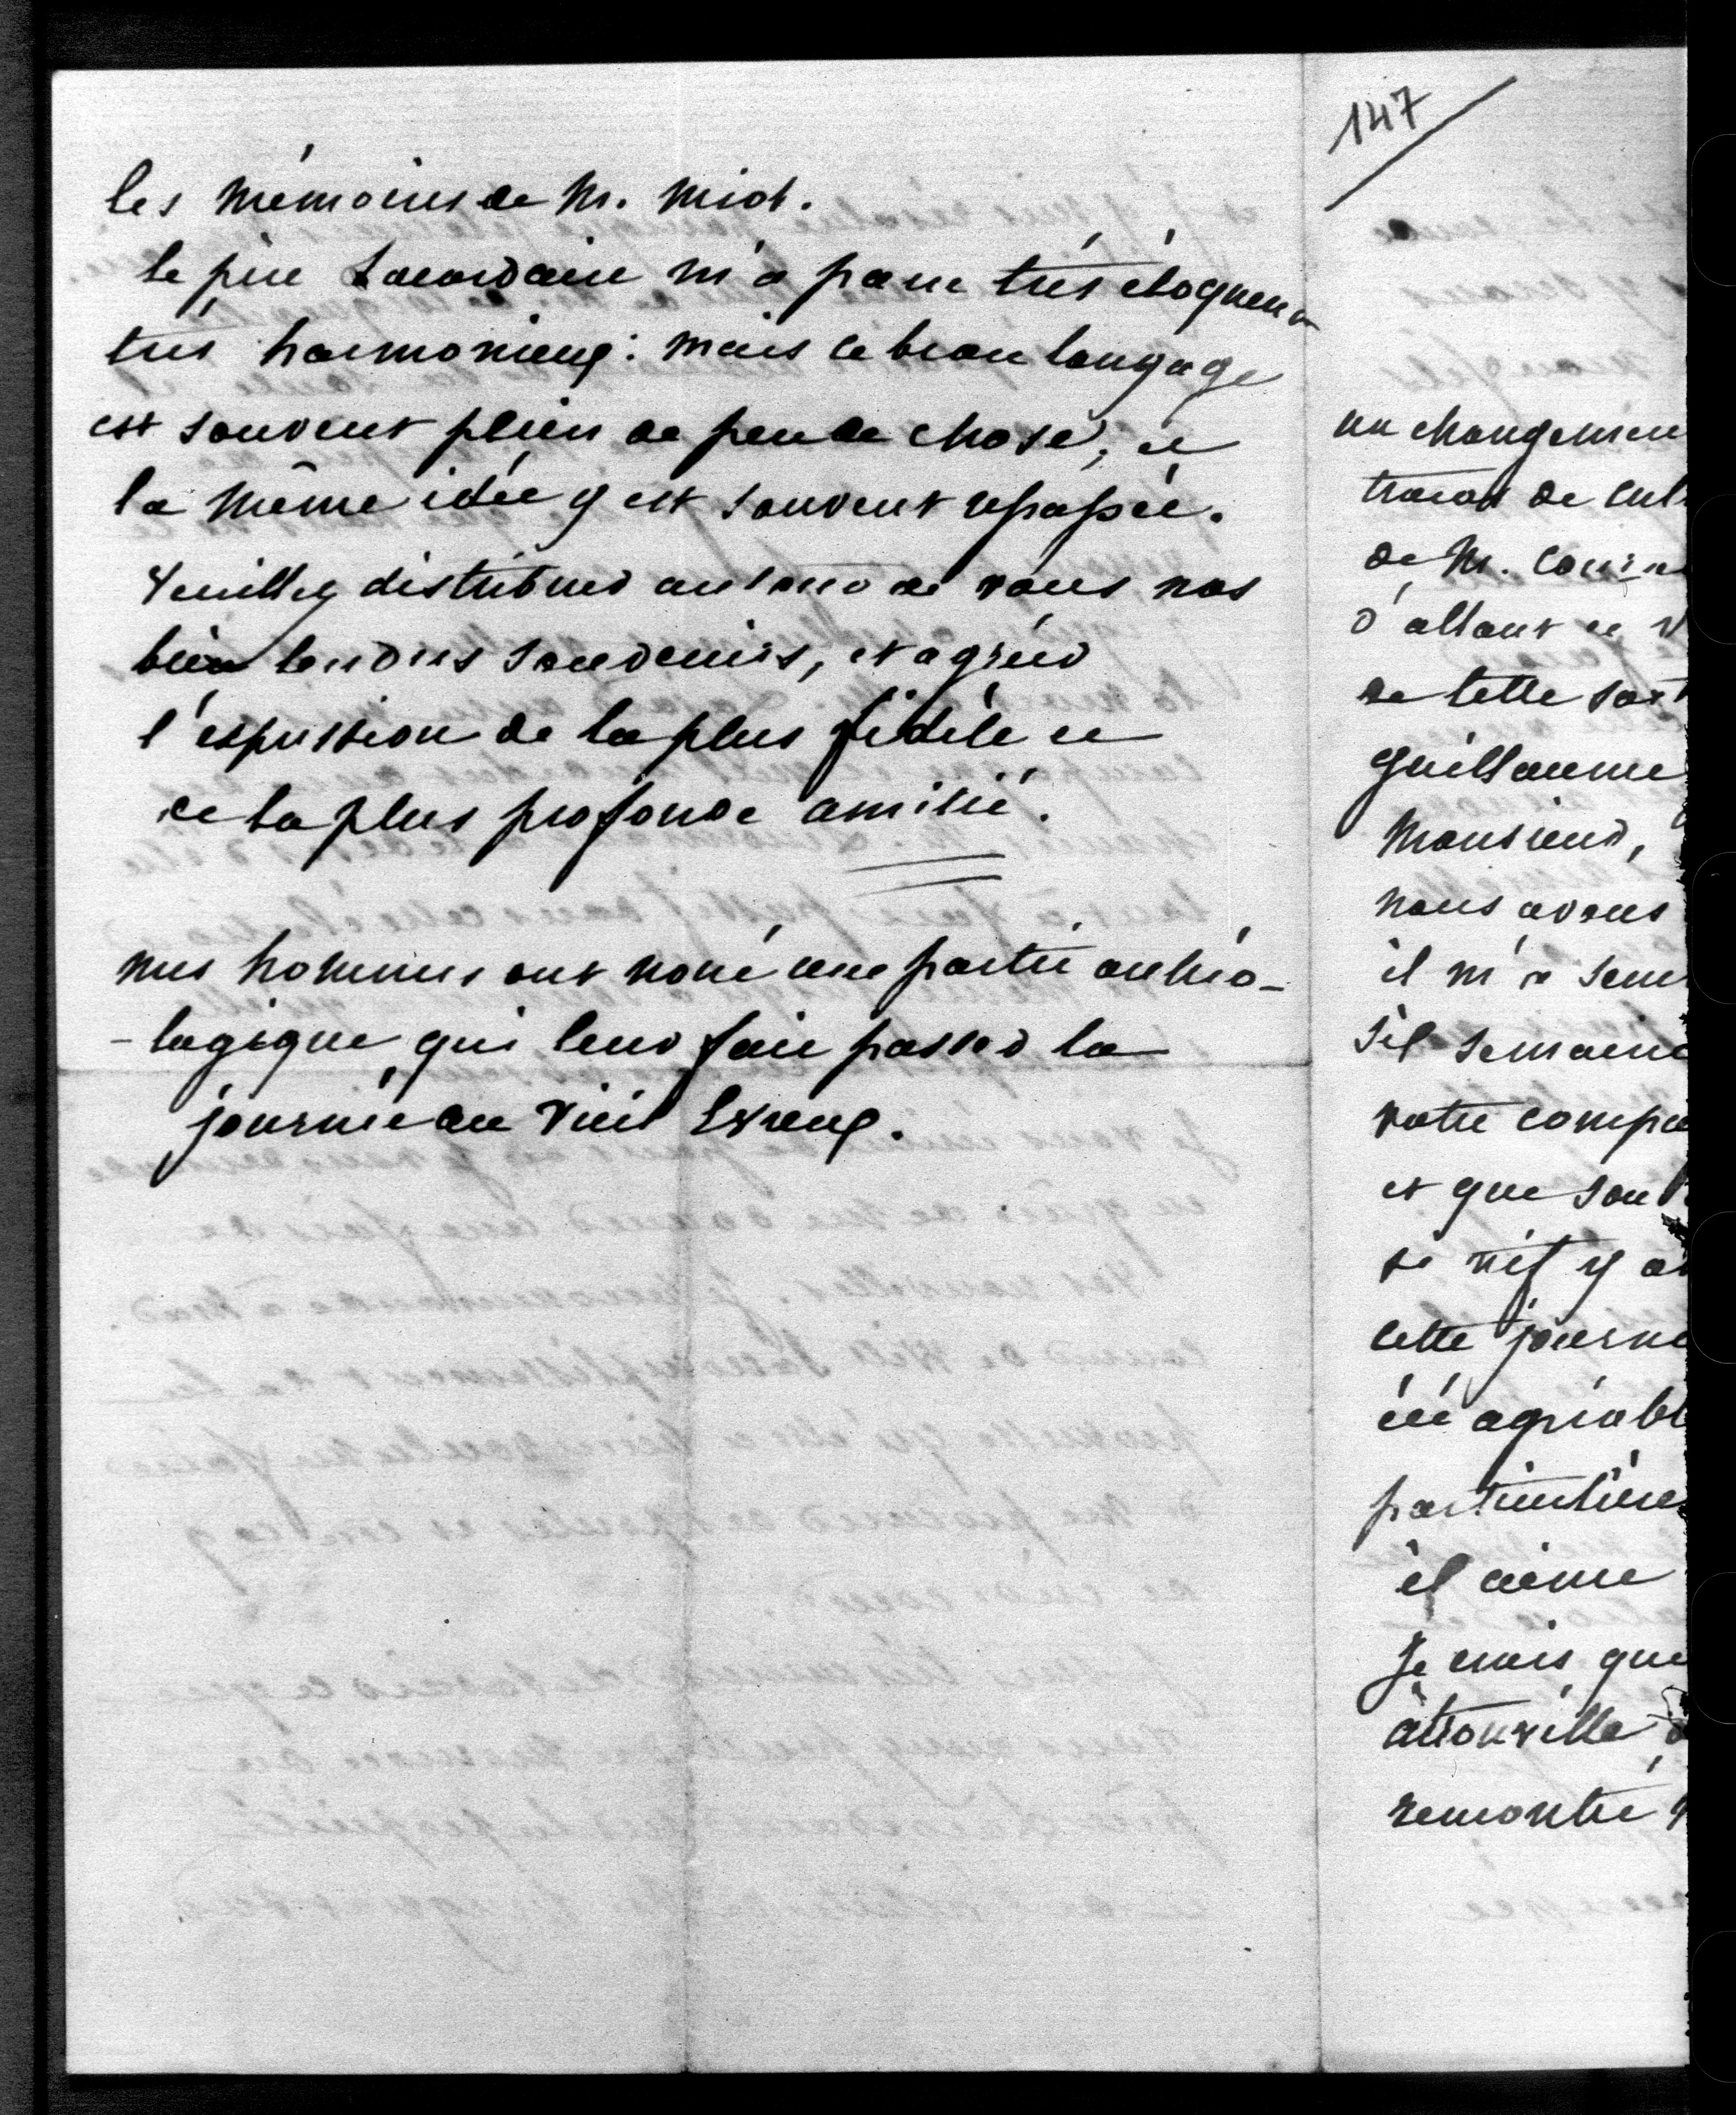 les mémoires de M. Miot.
le père Lacordaire m'a paru très éloquent
très harmonieux : mais ce beau langage
est souvent plein de peu de chose, et
la même idée y est souvent repassée.
Veuillez distribuer autour de vous nos
bien tendres souvenirs, et agréer
l'expression de la plus fidèle et
de la plus profonde amitié.
mes hommes ont noué une partie archéo-
-logique, qui leur fait passer la
journée au Vieil Evreux.
147
un changemen
travail de cul
de M. Cousin
d'allant et v
de cette sort
guillaume
Monsieur,
nous avons
il m'a sem
s'il semaine
votre compa
et que son
si vif y a
cette journé
été agréabl
particulière
il aime
Je crois que
à trouville
remontré